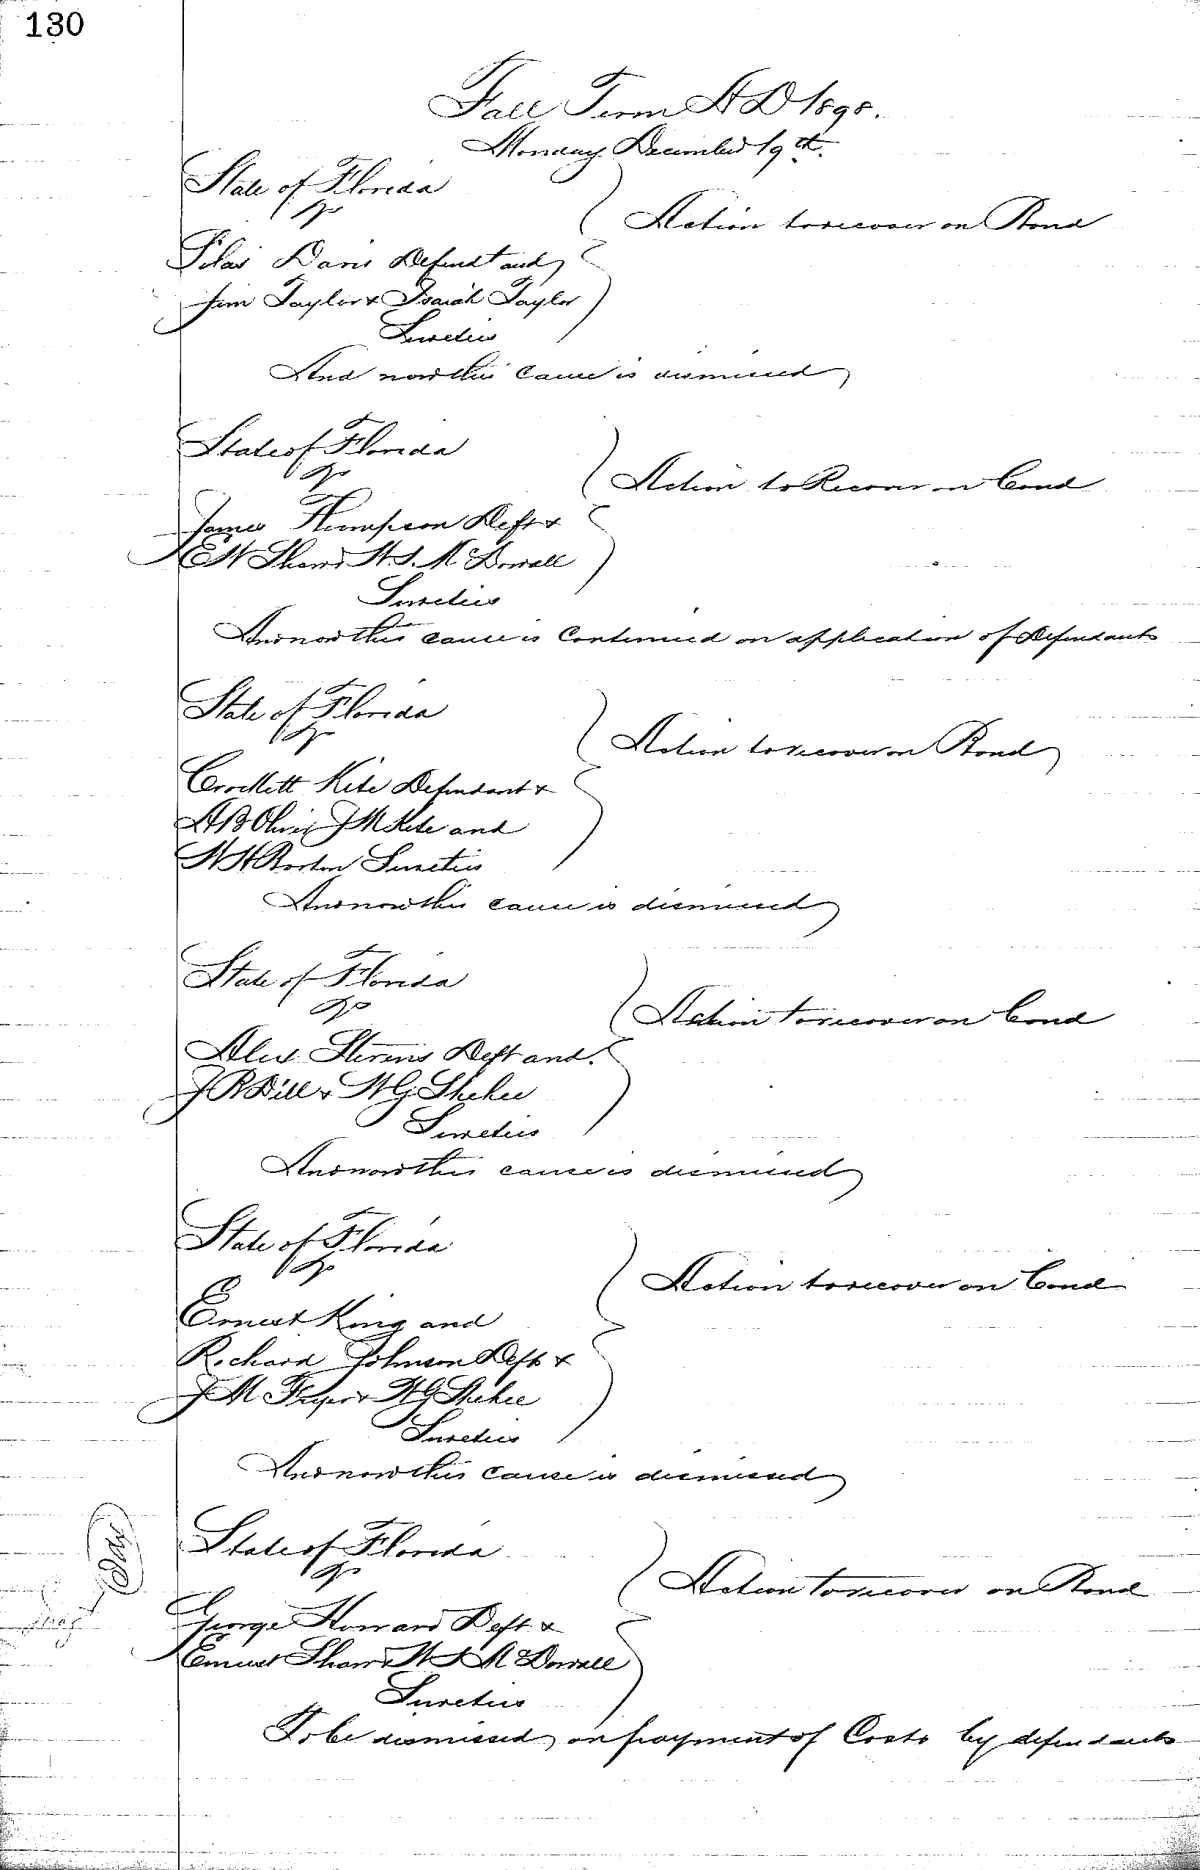 130
Fall Term A D 1898.
Monday December 19th.
State of Florida
vs
Action to recover on Bond
Silas Davis Defendt and
Jim Taylor & Isaiah Taylor
Sureties
And now this cause is dismissed
State of Florida
vs
Action to Recover on Bond
James Thompson Deft &
E W Shaw & W. S. McDowall
Sureties
And now this cause is Continued on application of Defendants
State of Florida
vs
Action to recover on Bond
Crockett Kite Defendant &
J M Kite and
Sureties
And now this cause is dismissed
State of Florida
vs
Action to recover on Bond
Alex Stevens Deft and
J R Dill & W G Shehee
Sureties
And now this cause is dismissed
State of Florida
vs
Action to recover on Bond
Ernest King and
Richard Johnson Defts &
J M & W G Shehee
Sureties
And now this cause is dismissed
State of Florida
vs
Action to recover on Bond
George Howard Deft &
Ernest Shaw & W S McDowall
Sureties
To be dismissed on payment of Costs by defendants